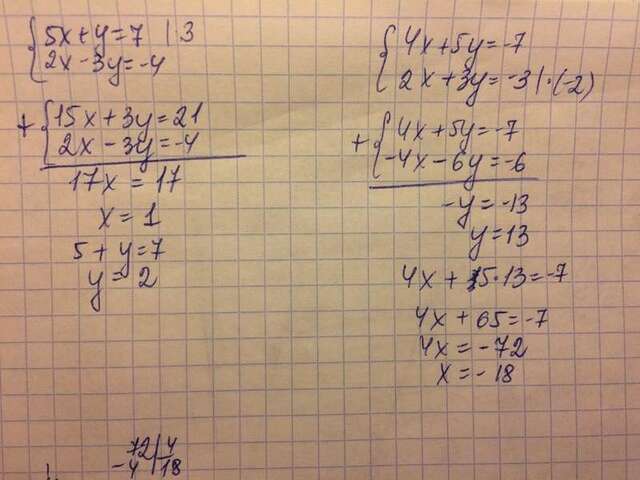 5x+y=7 | 3
2x-3y=-4
+ 15x+3y=21
2x-3y=-4
17x=17
x=1
5+y=7
y=2
4x+5y=-7
2x+3y=-3 | ·(-2)
+ 4x+5y=-7
-4x-6y=-6
-y=-13
y=13
4x+5·13=-7
4x+65=-7
4x=-72
x=-18
72 | 4
-4 | 18